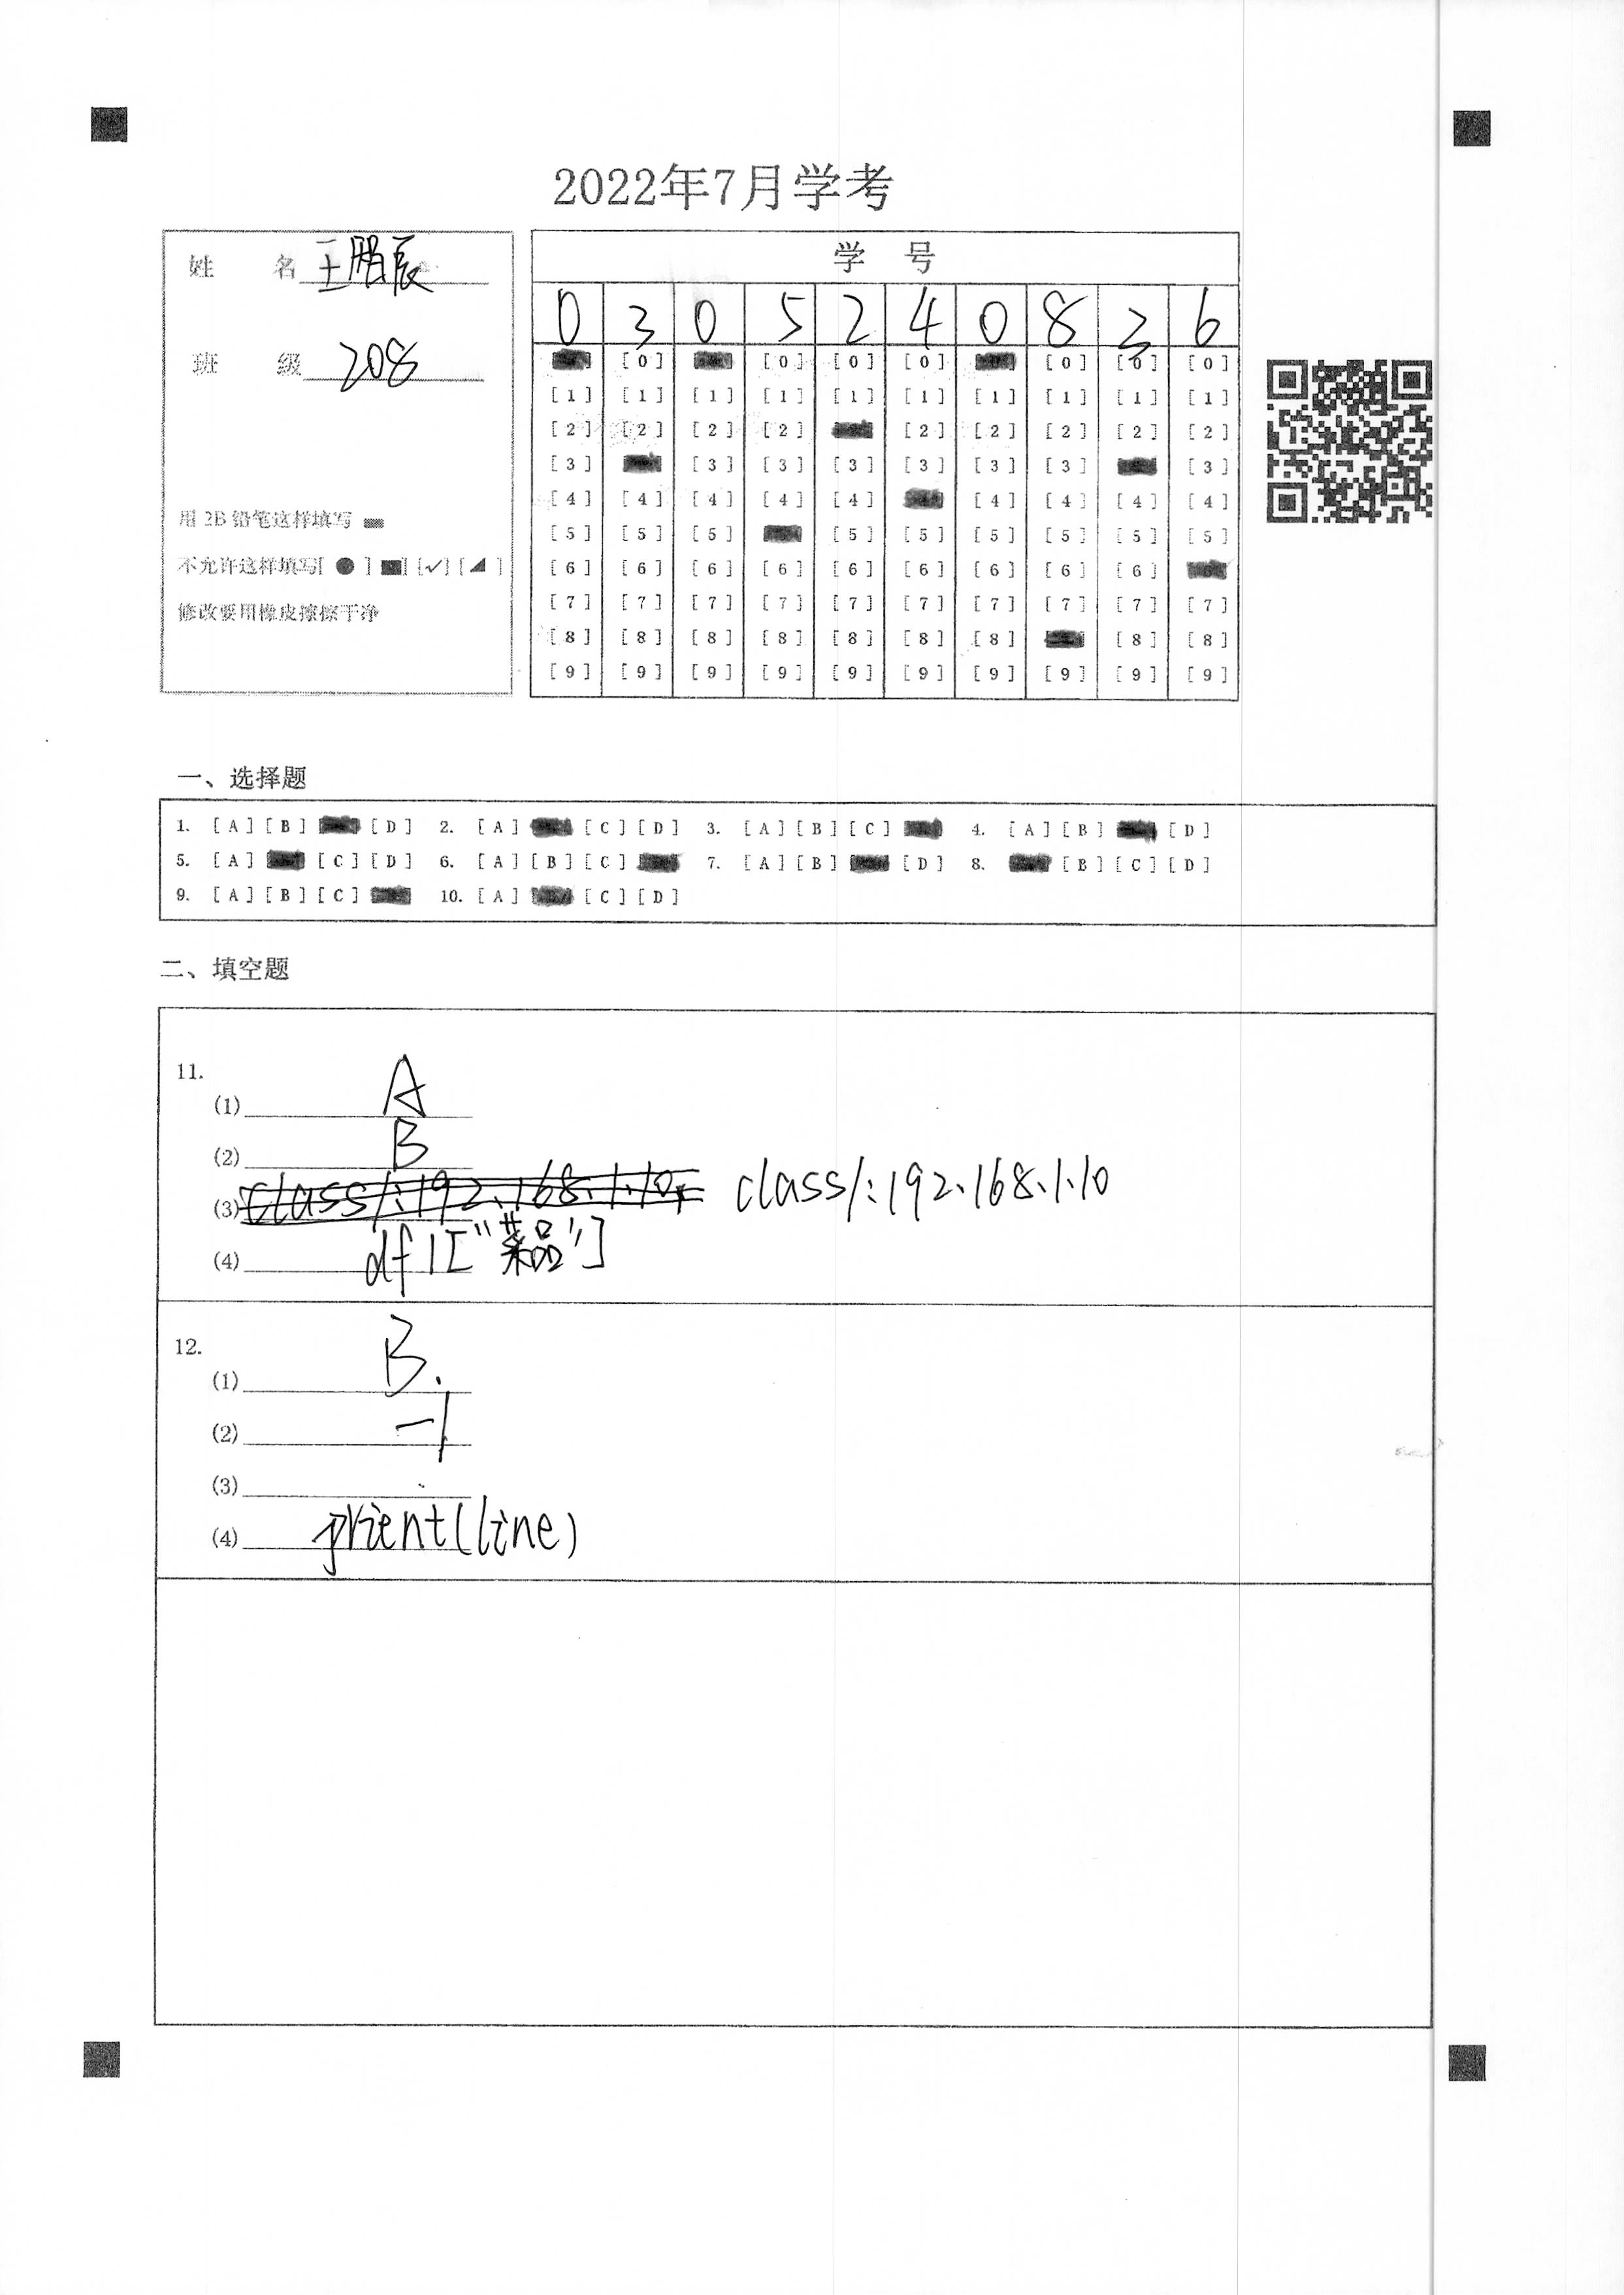 2022年7月学考
姓 名 王鹏辰
班 级 208
用 2B 铅笔这样填写
不允许这样填写[ ● ] [■] [✓] [◢ ]
修改要用橡皮擦擦干净
学 号
0 3 0 5 2 4 0 8 3 6
[0] [0] [0] [0] [0] [0] [0]
[1] [1] [1] [1] [1] [1] [1] [1] [1] [1]
[2] [2] [2] [2] [2] [2] [2] [2] [2]
[3] [3] [3] [3] [3] [3] [3] [3]
[4] [4] [4] [4] [4] [4] [4] [4] [4]
[5] [5] [5] [5] [5] [5] [5] [5] [5]
[6] [6] [6] [6] [6] [6] [6] [6] [6]
[7] [7] [7] [7] [7] [7] [7] [7] [7] [7]
[8] [8] [8] [8] [8] [8] [8] [8] [8]
[9] [9] [9] [9] [9] [9] [9] [9] [9] [9]
一、选择题
1. [A] [B] [D] 2. [A] [C] [D] 3. [A] [B] [C] 4. [A] [B] [D]
5. [A] [C] [D] 6. [A] [B] [C] 7. [A] [B] [D] 8. [B] [C] [D]
9. [A] [B] [C] 10. [A] [C] [D]
二、填空题
11.
(1) A
(2) B
(3) class1:192.168.1.10, class1:192.168.1.10
(4) df1["菜品"]
12.
(1) B.
(2) -1
(3)
(4) prient(line)